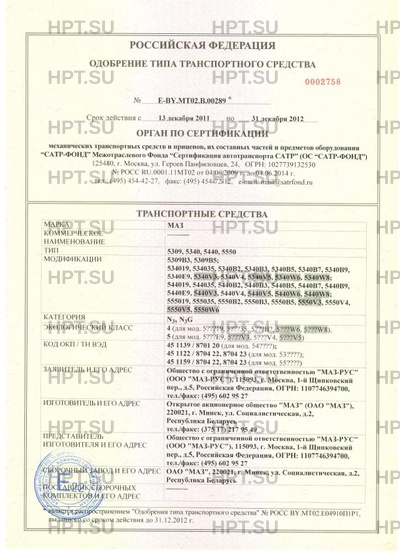 РОССИЙСКАЯ ФЕДЕРАЦИЯ
ОДОБРЕНИЕ ТИПА ТРАНСПОРТНОГО СРЕДСТВА
0002758
№ E-BY.MT02.B.00289 *
Срок действия с 13 декабря 2011 по 31 декабря 2012
ОРГАН ПО СЕРТИФИКАЦИИ
механических транспортных средств и прицепов, их составных частей и предметов оборудования
“САТР-ФОНД” Межотраслевого Фонда “Сертификация автотранспорта САТР” (ОС “САТР-ФОНД”)
125480, г. Москва, ул. Героев Панфиловцев, 24, ОГРН: 1027739132530
№ РОСС RU.0001.11МТ02 от 04.06.2009 до 04.06.2014 г.
тел. (495) 454-42-27, факс (495) e-mail: mail@satrfond.ru
ТРАНСПОРТНЫЕ СРЕДСТВА
МАРКА МАЗ
КОММЕРЧЕСКОЕ
НАИМЕНОВАНИЕ
ТИП 5309, 5340, 5440, 5550
МОДИФИКАЦИИ 5309B3, 5309B5;
534019, 534035, 5340B2, 5340B3, 5340B5, 5340B7, 5340B9,
5340E9, 5340V3, 5340V4, 5340V5, 5340W6, 5340W8;
544019, 544035, 5440B2, 5440B3, 5440B5, 5440B7, 5440B9,
5440E9, 5440V3, 5440V4, 5440V5, 5440W6, 5440W8;
555019, 555035, 5550B2, 5550B3, 5550B5, 5550V3, 5550V4,
5550V5, 5550W6
КАТЕГОРИЯ N3, N3G
ЭКОЛОГИЧЕСКИЙ КЛАСС 4 (для мод.
5 (для мод.
КОД ОКП / ТН ВЭД 45 1139 / 8701 20 (для мод. 54????);
45 1122 / 8704 22, 8704 23 (для мод. 53????);
45 1159 / 8704 22, 8704 23 (для мод. 55????)
ЗАЯВИТЕЛЬ И ЕГО АДРЕС Общество с ограниченной ответственностью "МАЗ-РУС"
(ООО "МАЗ-РУС"); 115093, г. Москва, 1-й Щипковский
пер., д.5, Российская Федерация, ОГРН: 1107746394700,
тел./факс: (495) 602 95 27
ИЗГОТОВИТЕЛЬ И ЕГО АДРЕС Открытое акционерное общество "МАЗ" (ОАО "МАЗ"),
220021, г. Минск, ул. Социалистическая, д.2,
Республика Беларусь
тел./факс: (375 17) 217 95 49
ПРЕДСТАВИТЕЛЬ Общество с ограниченной ответственностью "МАЗ-РУС"
ИЗГОТОВИТЕЛЯ И ЕГО АДРЕС (ООО "МАЗ-РУС"), 115093, г. Москва, 1-й Щипковский
пер., д.5, Российская Федерация, ОГРН: 1107746394700,
тел./факс: (495) 602 95 27
СБОРОЧНЫЙ ЗАВОД И ЕГО АДРЕС ОАО "МАЗ", 220021, г. Минск, ул. Социалистическая, д.2,
Республика Беларусь
ПОСТАВЩИК СБОРОЧНЫХ
КОМПЛЕКТОВ И ЕГО АДРЕС
* является распространением "Одобрения типа транспортного средства" № РОСС BY.MT02.E04910П1Р1,
выданного со сроком действия до 31.12.2012 г.
НРТ.SU